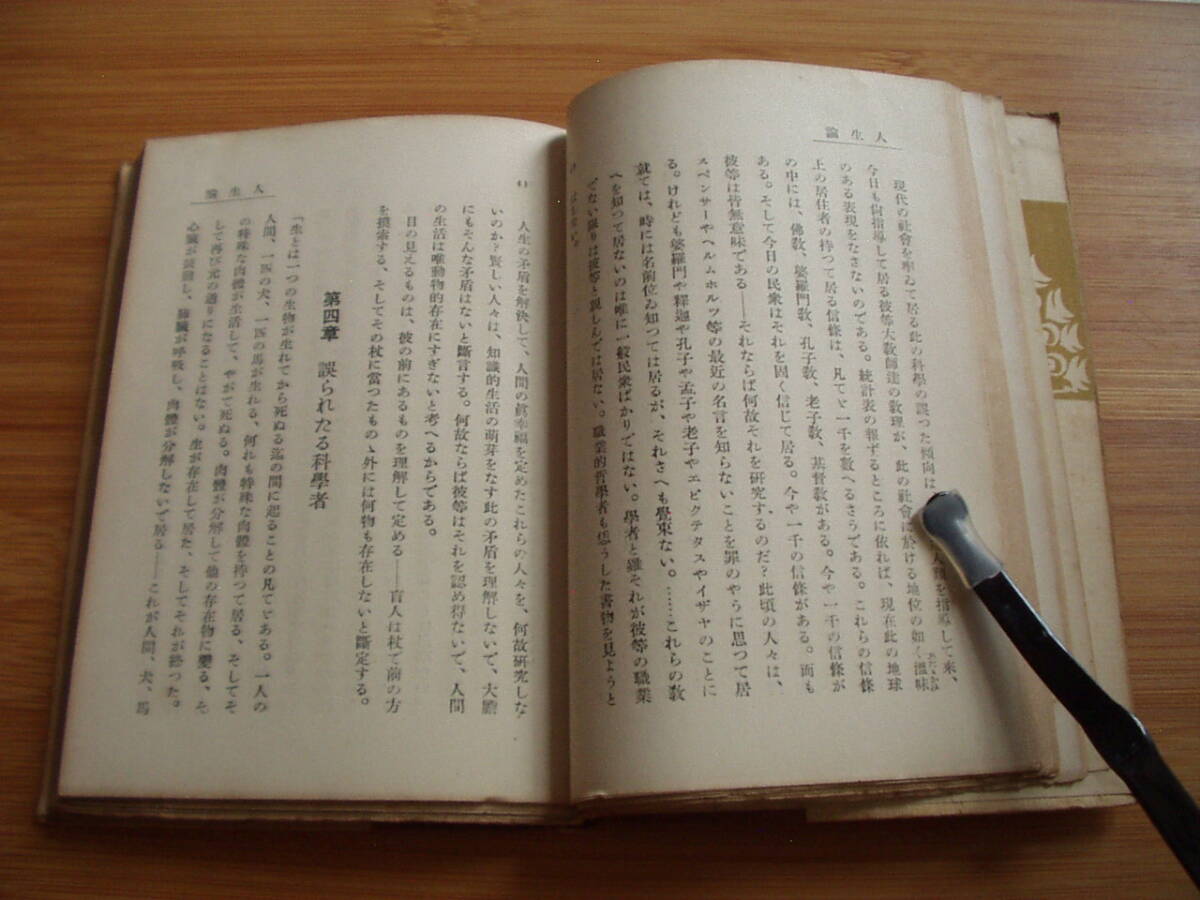 人生論
現代の社會を率ゐて居る此の科學の誤つた傾向は
を指導して來、
今日も尙指導して居る彼等大敎師達の敎理が、此の社會に於ける地位の如く
のある表現をなさないのである。統計表の報ずるところに依れば、現在此の地球
上の居住者の持つて居る信條は、凡てゞ一千を數へるさうである。これらの信條
の中には、佛敎、婆羅門敎、孔子敎、老子敎、基督敎がある。今や一千の信條が
ある。そして今日の民衆はそれを固く信じて居る。今や一千の信條がある。而も
彼等は皆無意味である――それならば何故それを研究するのだ？此頃の人々は、
スペンサーやヘルムホルツ等の最近の名言を知らないことを罪のやうに思つて居
る。けれども婆羅門や釋迦や孔子や孟子や老子やエピクテタスやイザヤのことに
就ては、時には名前位ゐ知つては居るが、それさへも覺束ない。……これらの敎
へを知つて居ないのは唯に一般民衆ばかりではない。學者と雖それが彼等の職業
でない限りは彼等と親しんでは居ない。職業的哲學者も恁うした書物を見ようと
はしない。
人生の矛盾を解決して、人間の眞幸福を定めたこれらの人々を、何故研究しな
いのか？賢しい人々は、知識的生活の萌芽をなす此の矛盾を理解しないで、大膽
にもそんな矛盾はないと斷言する。何故ならば彼等はそれを認め得ないで、人間
の生活は唯動物的存在にすぎないと考へるからである。
目の見えるものは、彼の前にあるものを理解して定める――盲人は杖で前の方
を摸索する、そしてその杖に當つたものゝ外には何物も存在しないと斷定する。
第四章　誤られたる科學者
「生とは一つの生物が生れてから死ぬる迄の間に起ることの凡てゞある。一人の
人間、一匹の犬、一匹の馬が生れる、何れも特殊な肉體を持つて居る、そしてそ
の特殊な肉體が生活して、やがて死ぬる。肉體が分解して他の存在物に變る、そ
して再び元の通りになることはない。生が存在して居た、そしてそれが終つた。
心臟が鼓動し、肺臟が呼吸し、肉體が分解しないで居る――これが人間、犬、馬
人生論